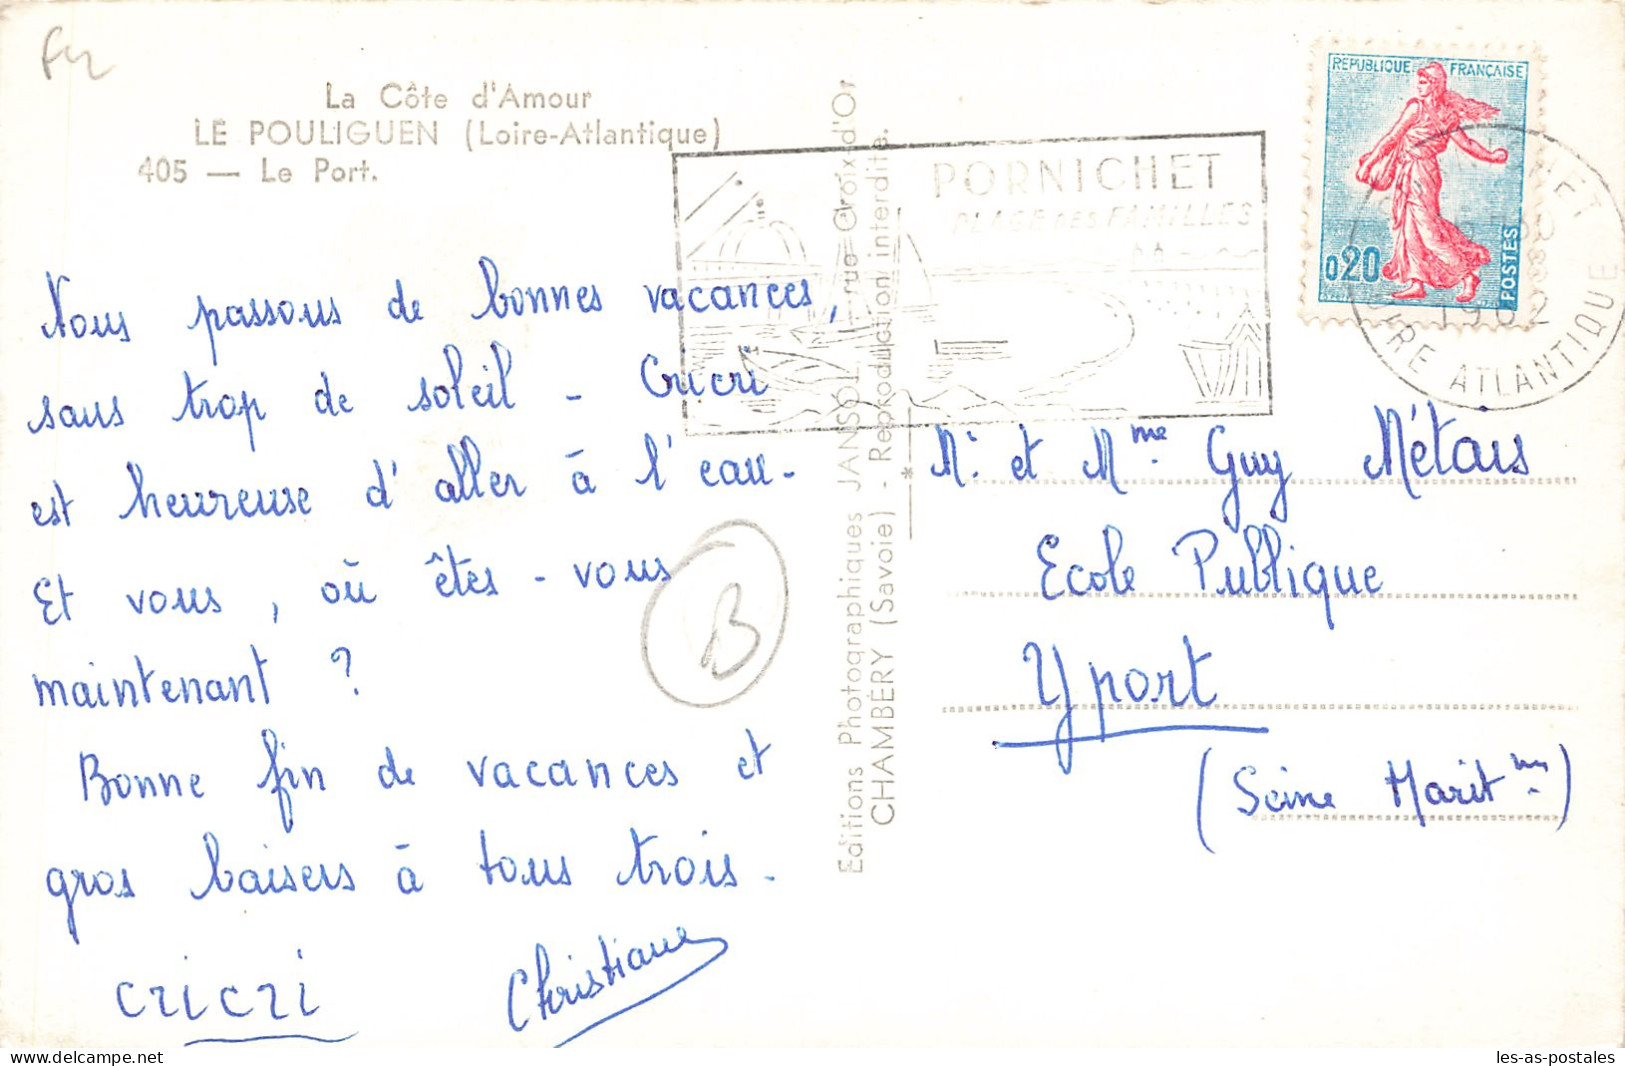 La Côte d'Amour
LE POULIGUEN (Loire-Atlantique)
405 — Le Port.
Nous passons de bonnes vacances,
sans trop de soleil - Cricri
est heureuse d'aller à l'eau.
Et vous, où êtes-vous
maintenant ?
Bonne fin de vacances et
gros baisers à tous trois.
cricri Christiane
B
Editions Photographiques JANSOL, rue Croix-d'Or
CHAMBÉRY (Savoie) - Reproduction interdite.
PORNICHET
PLAGE DES FAMILLES
REPUBLIQUE FRANÇAISE
0,20
POSTES
LOIRE ATLANTIQUE
1962
Mr. et Mme. Guy Métais
Ecole Publique
Yport
(Seine Maritm.)
les-as-postales